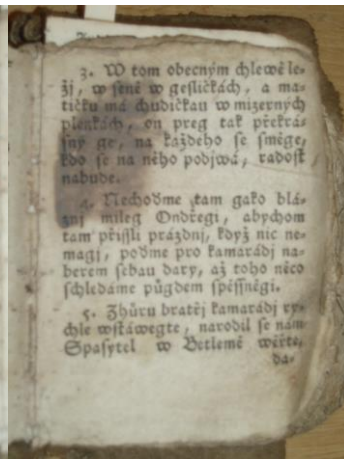 3. W tom obecným chlewě le-
žj, w seně w gesličkách, a ma-
tičku má chudičkau w mizerných
plenkách, on preg tak překrá-
sný ge, na každeho se směge,
kdo se na něho podjwá, radost
nabude.
4. Nechoďme tam gako blá-
znj mileg Ondřegi, abychom
tam přissli prázdnj, když nic ne-
magj, poďme pro kamarádj na-
berem sebau dary, až toho něco
schledáme půgdem spěssněgi.
5. Zhůru bratřj kamarádj ry-
chle wstáwegte, narodil se nám
Spasytel w Betlemě wěřte,
da-